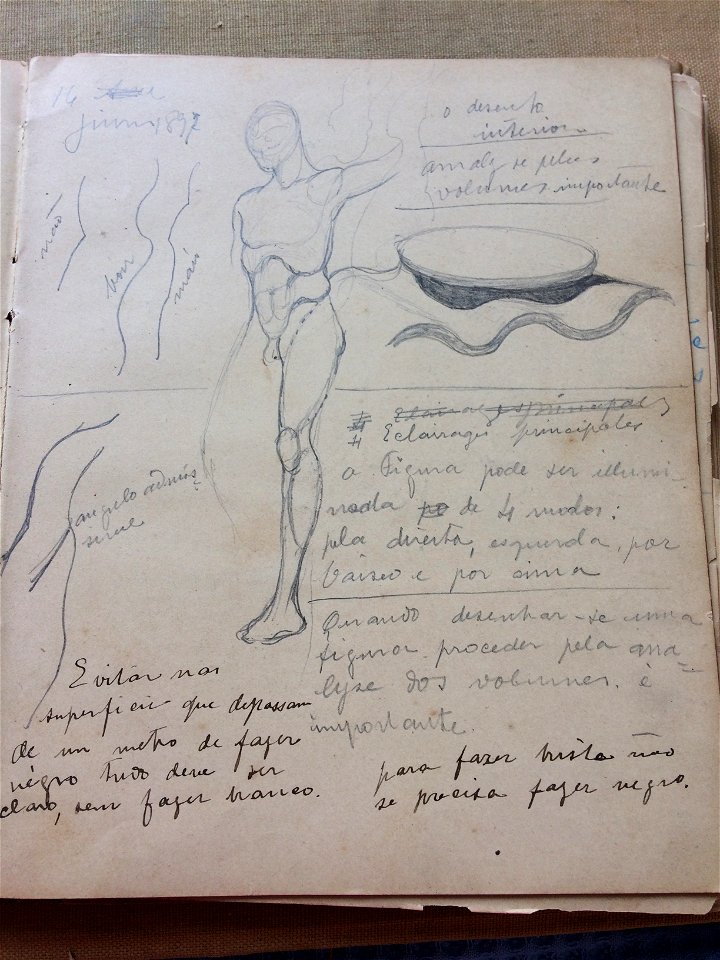 16
junn 1897
o desenho
interior
analyse pelos
volumes importante
não
bon
máu
angulo admis
sivel
4 Eclairages principales
a Figura pode ser illumi-
nada de 4 modos:
pela direita, esquerda, por
baixo e por cima
Quando desenhar-se uma
figura proceder pela ana-
lyse dos volumes. é
importante.
Evitar nas
superficies que depassam
de un metro de fazer
négro tudo deve ser
claro, sem fazer branco.
para fazer triste não
se precisa fazer negro.